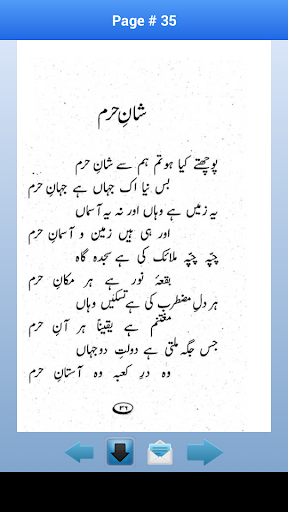 Page # 35
شانِ حرم
پوچھتے کیا ہو تم ہم سے شانِ حرم
بس نیا اک جہاں ہے جہانِ حرم
یہ زمیں ہے وہاں اور نہ یہ آسماں
اور ہی ہیں زمین و آسمانِ حرم
چپّہ چپّہ ملائک کی ہے سجدہ گاہ
بقعۂ نور ہے ہر مکانِ حرم
ہر دلِ مضطرب کی ہے تسکیں وہاں
مغتنم ہے یقیناً ہر آنِ حرم
جس جگہ ملتی ہے دولتِ دوجہاں
وہ درِ کعبہ وہ آستانِ حرم